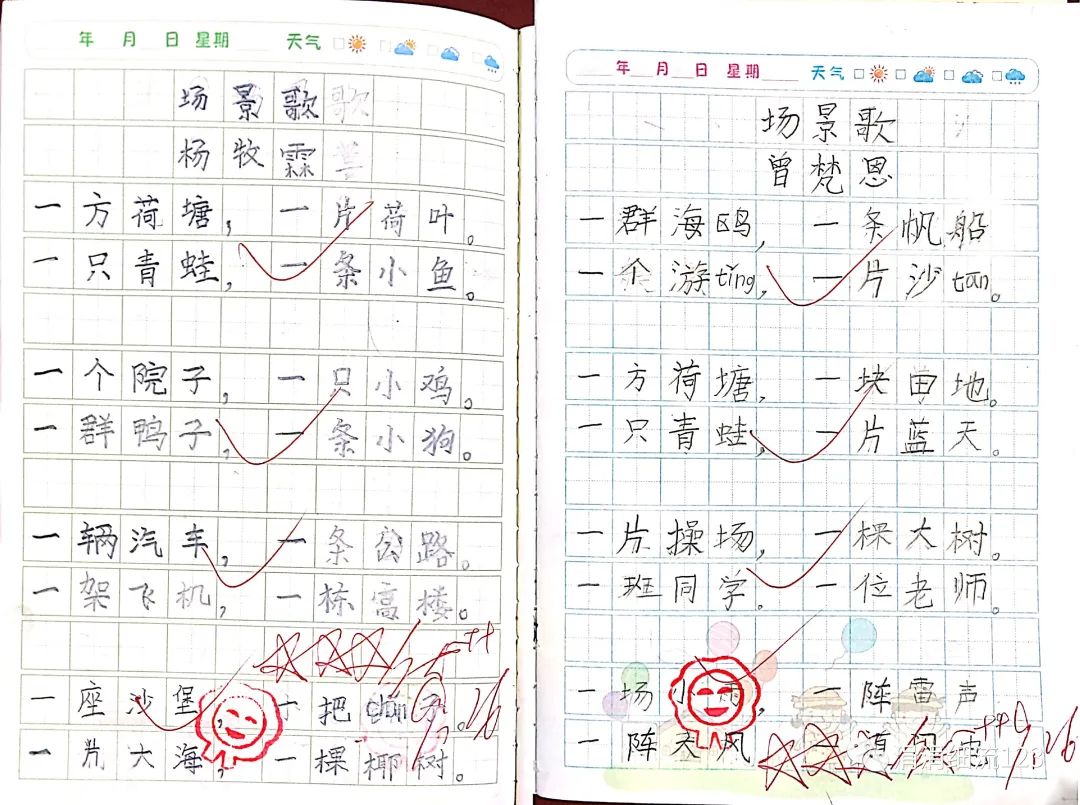 年 月 日 星期 天气
场景歌
杨牧霖
一方荷塘，一片荷叶。
一只青蛙，一条小鱼。
一个院子，一只小鸡。
一群鸭子，一条小狗。
一辆汽车，一条公路。
一架飞机，一栋高楼。
一座沙堡，一把
一片大海，一棵椰树。
9.26
年 月 日 星期 天气
场景歌
曾梵恩
一群海鸥，一条帆船
一个游tǐng，一片沙tān。
一方荷塘，一块田地。
一只青蛙，一片蓝天。
一片操场，一棵大树。
一班同学。一位老师。
一场小雨，一阵雷声
一阵大风
9.26